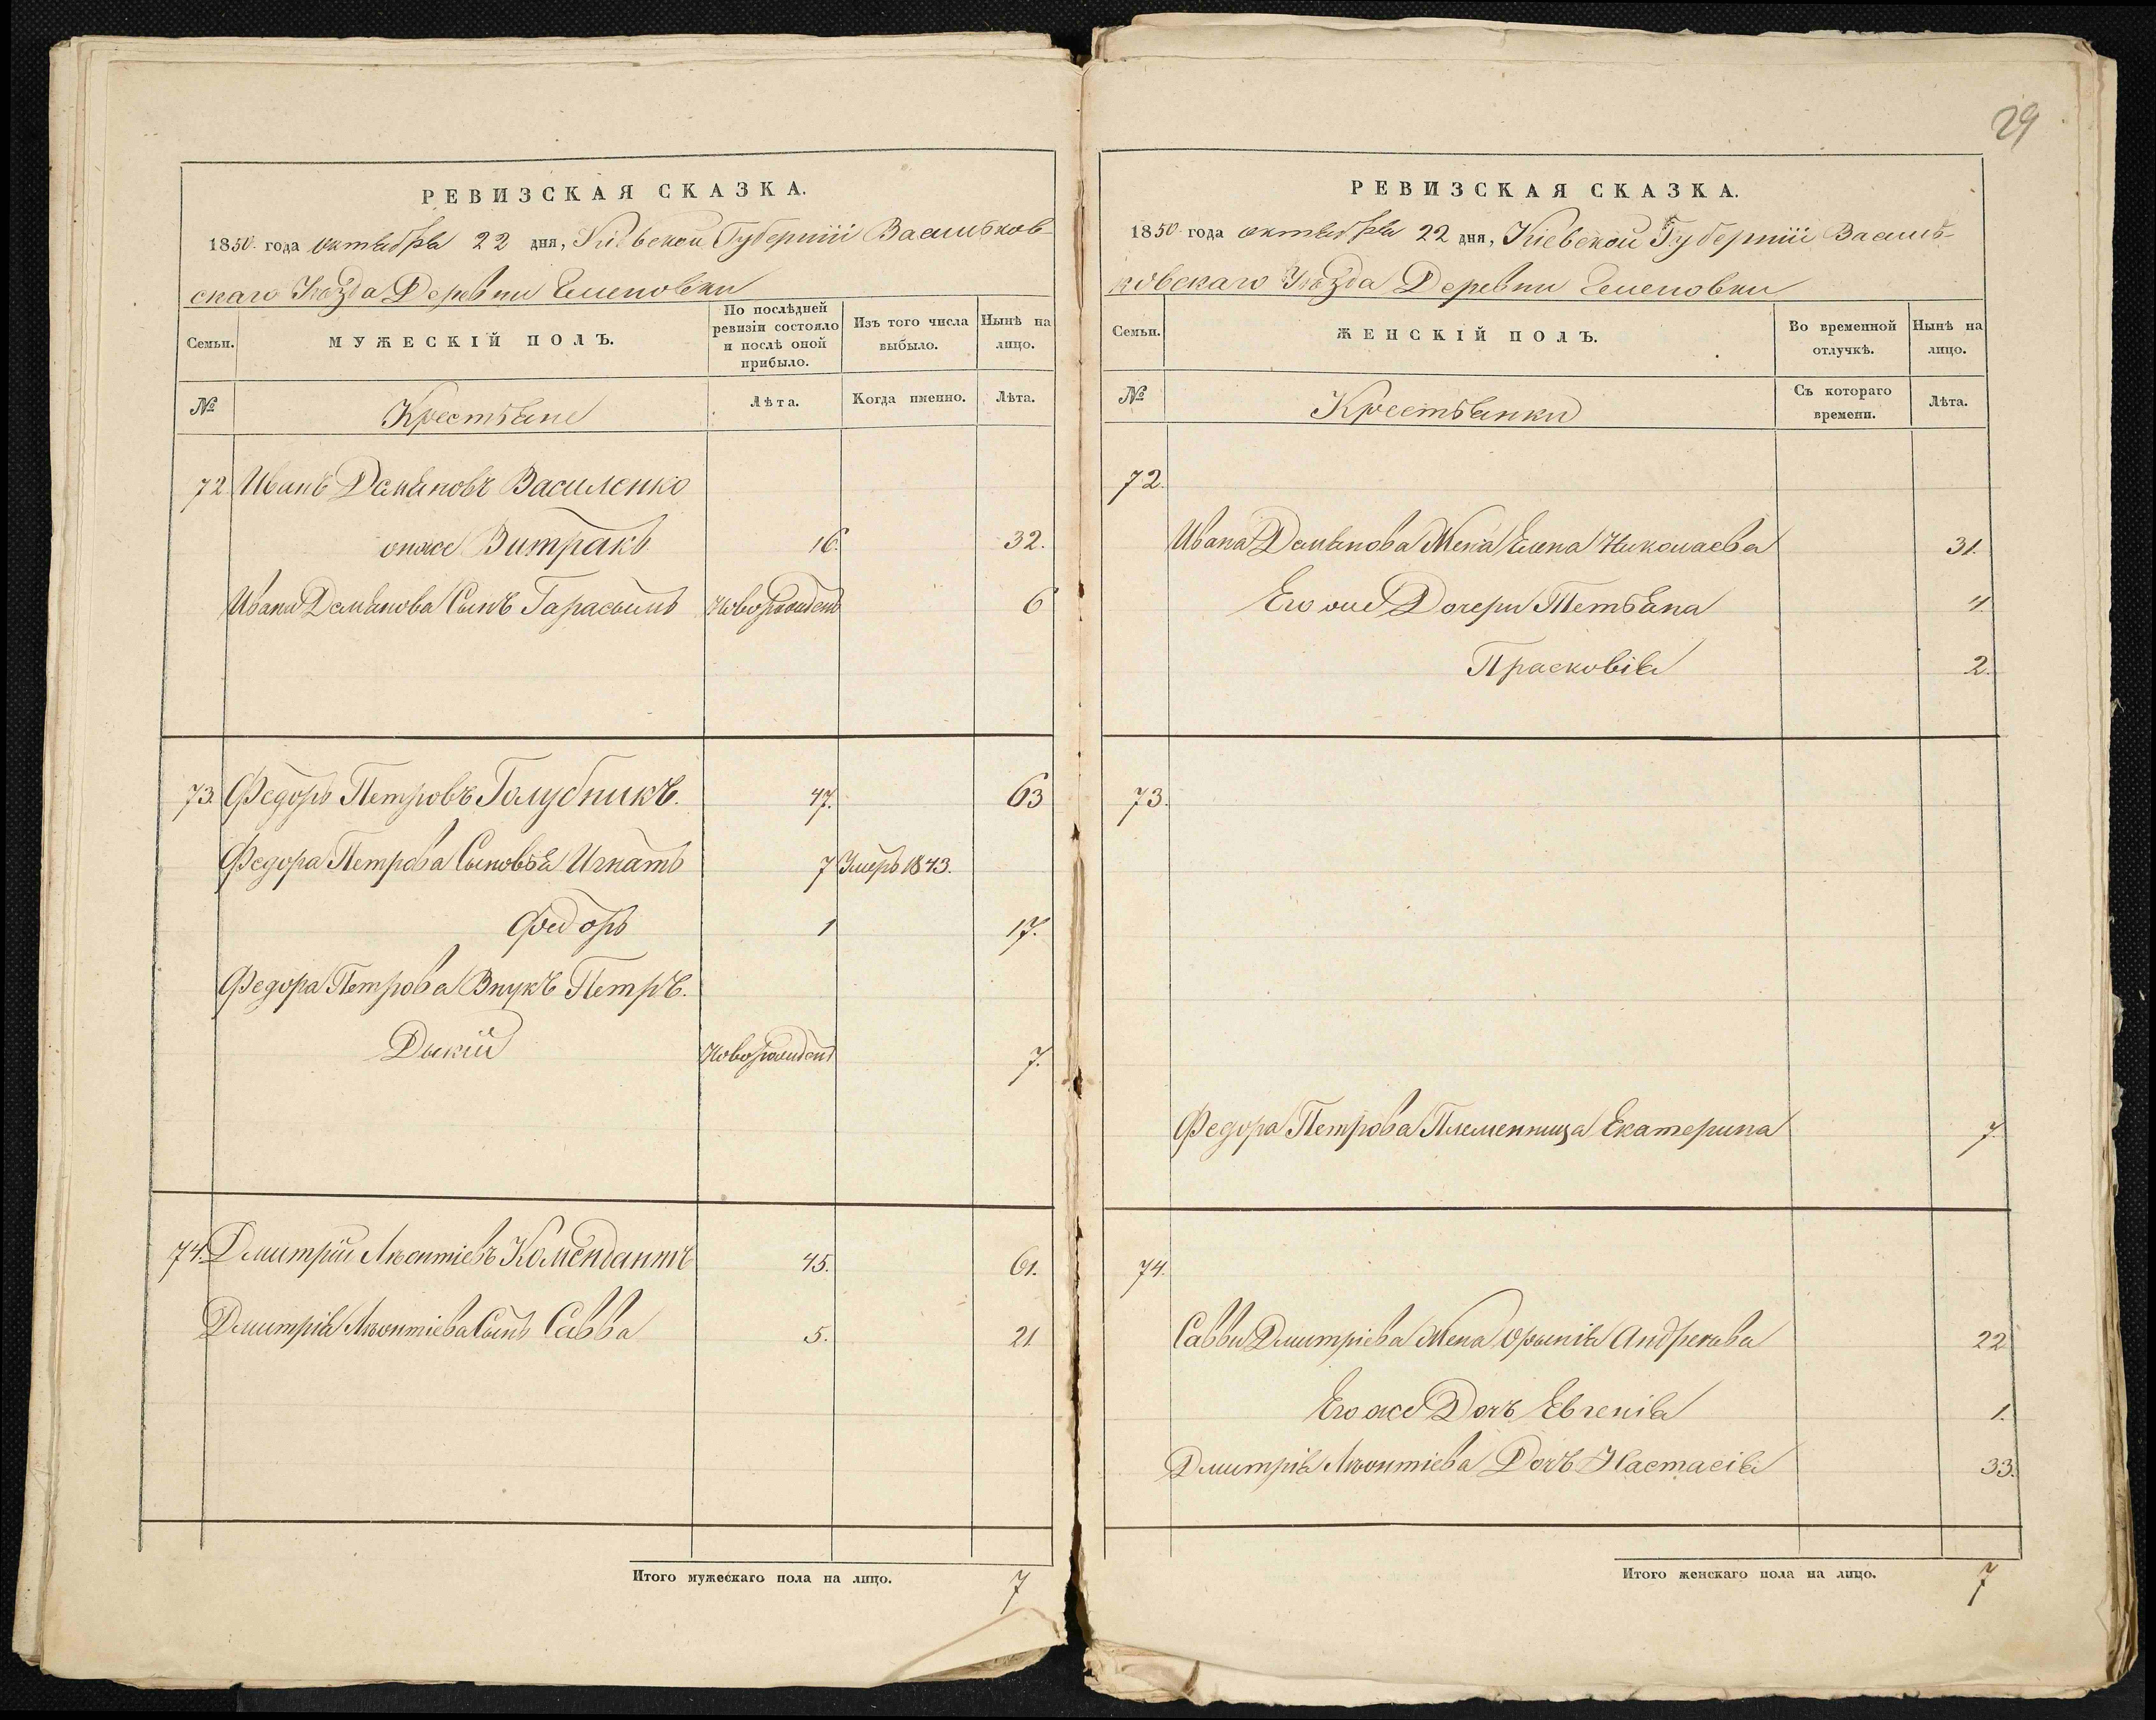 РЕВИЗСКАЯ СКАЗКА.
1850 года октября 22 дня, Кіевской Губерніи Васильков-
скаго Уѣзда Деревни Еленовки
Семьи.
МУЖЕСКІЙ ПОЛЪ.
По послѣдней ревизіи состояло и послѣ оной прибыло.
Изъ того числа выбыло.
Нынѣ на лицо.
№
Крестьяне
Лѣта.
Когда именно.
Лѣта.
72 Иванъ Демьяновъ Василенко
онже Витракъ 16. 32.
Ивана Демьянова Сынъ Гарасимъ Новорожденъ 6
73. Федоръ Петровъ Голубникъ. 47. 63
Федора Петрова Сыновья Игнатъ 7 Умеръ 1843.
Федоръ 1 17.
Федора Петрова Внукъ Петръ.
Дыкій Новорожденъ 7.
74. Дмитрій Леонтіевъ Комендантъ 45. 61.
Дмитрія Леонтіева Сынъ Савва 5. 21
Итого мужескаго пола на лицо. 7
29
РЕВИЗСКАЯ СКАЗКА.
1850 года октября 22 дня, Кіевской Губерніи Василь-
ковскаго Уѣзда Деревни Еленовки
Семьи.
ЖЕНСКІЙ ПОЛЪ.
Во временной отлучкѣ.
Нынѣ на лицо.
№
Крестьянки
Съ котораго времени.
Лѣта.
72.
Ивана Демьянова Жена Елена Николаева 31.
Его же Дочери Тетьяна 4.
Прасковія 2.
73.
Федора Петрова Племенница Екатерина 7.
74.
Саввы Дмитріева Жена Орынія Андреева 22
Его же Дочь Евгенія 1.
Дмитрія Леонтіева Дочь Настасія 33.
Итого женскаго пола на лицо. 7